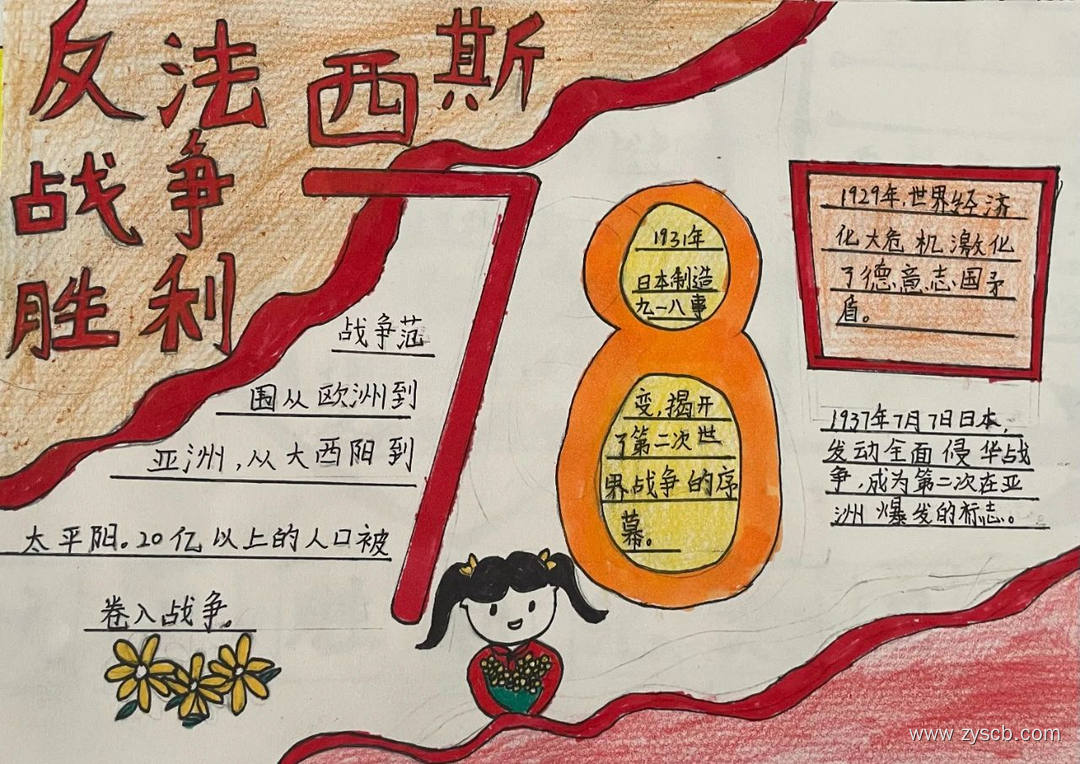 反法西斯
战争
胜利
78
战争范
围从欧洲到
亚洲,从大西阳到
太平阳。20亿以上的人口被
卷入战争。
1931年
日本制造
九一八事
变,揭开
了第二次世
界战争的序
幕。
1929年,世界经济
化大危机激化
了德意志国矛
盾。
1937年7月7日日本,
发动全面侵华战
争,成为第二次在亚
洲爆发的标志。
www.zyscb.com